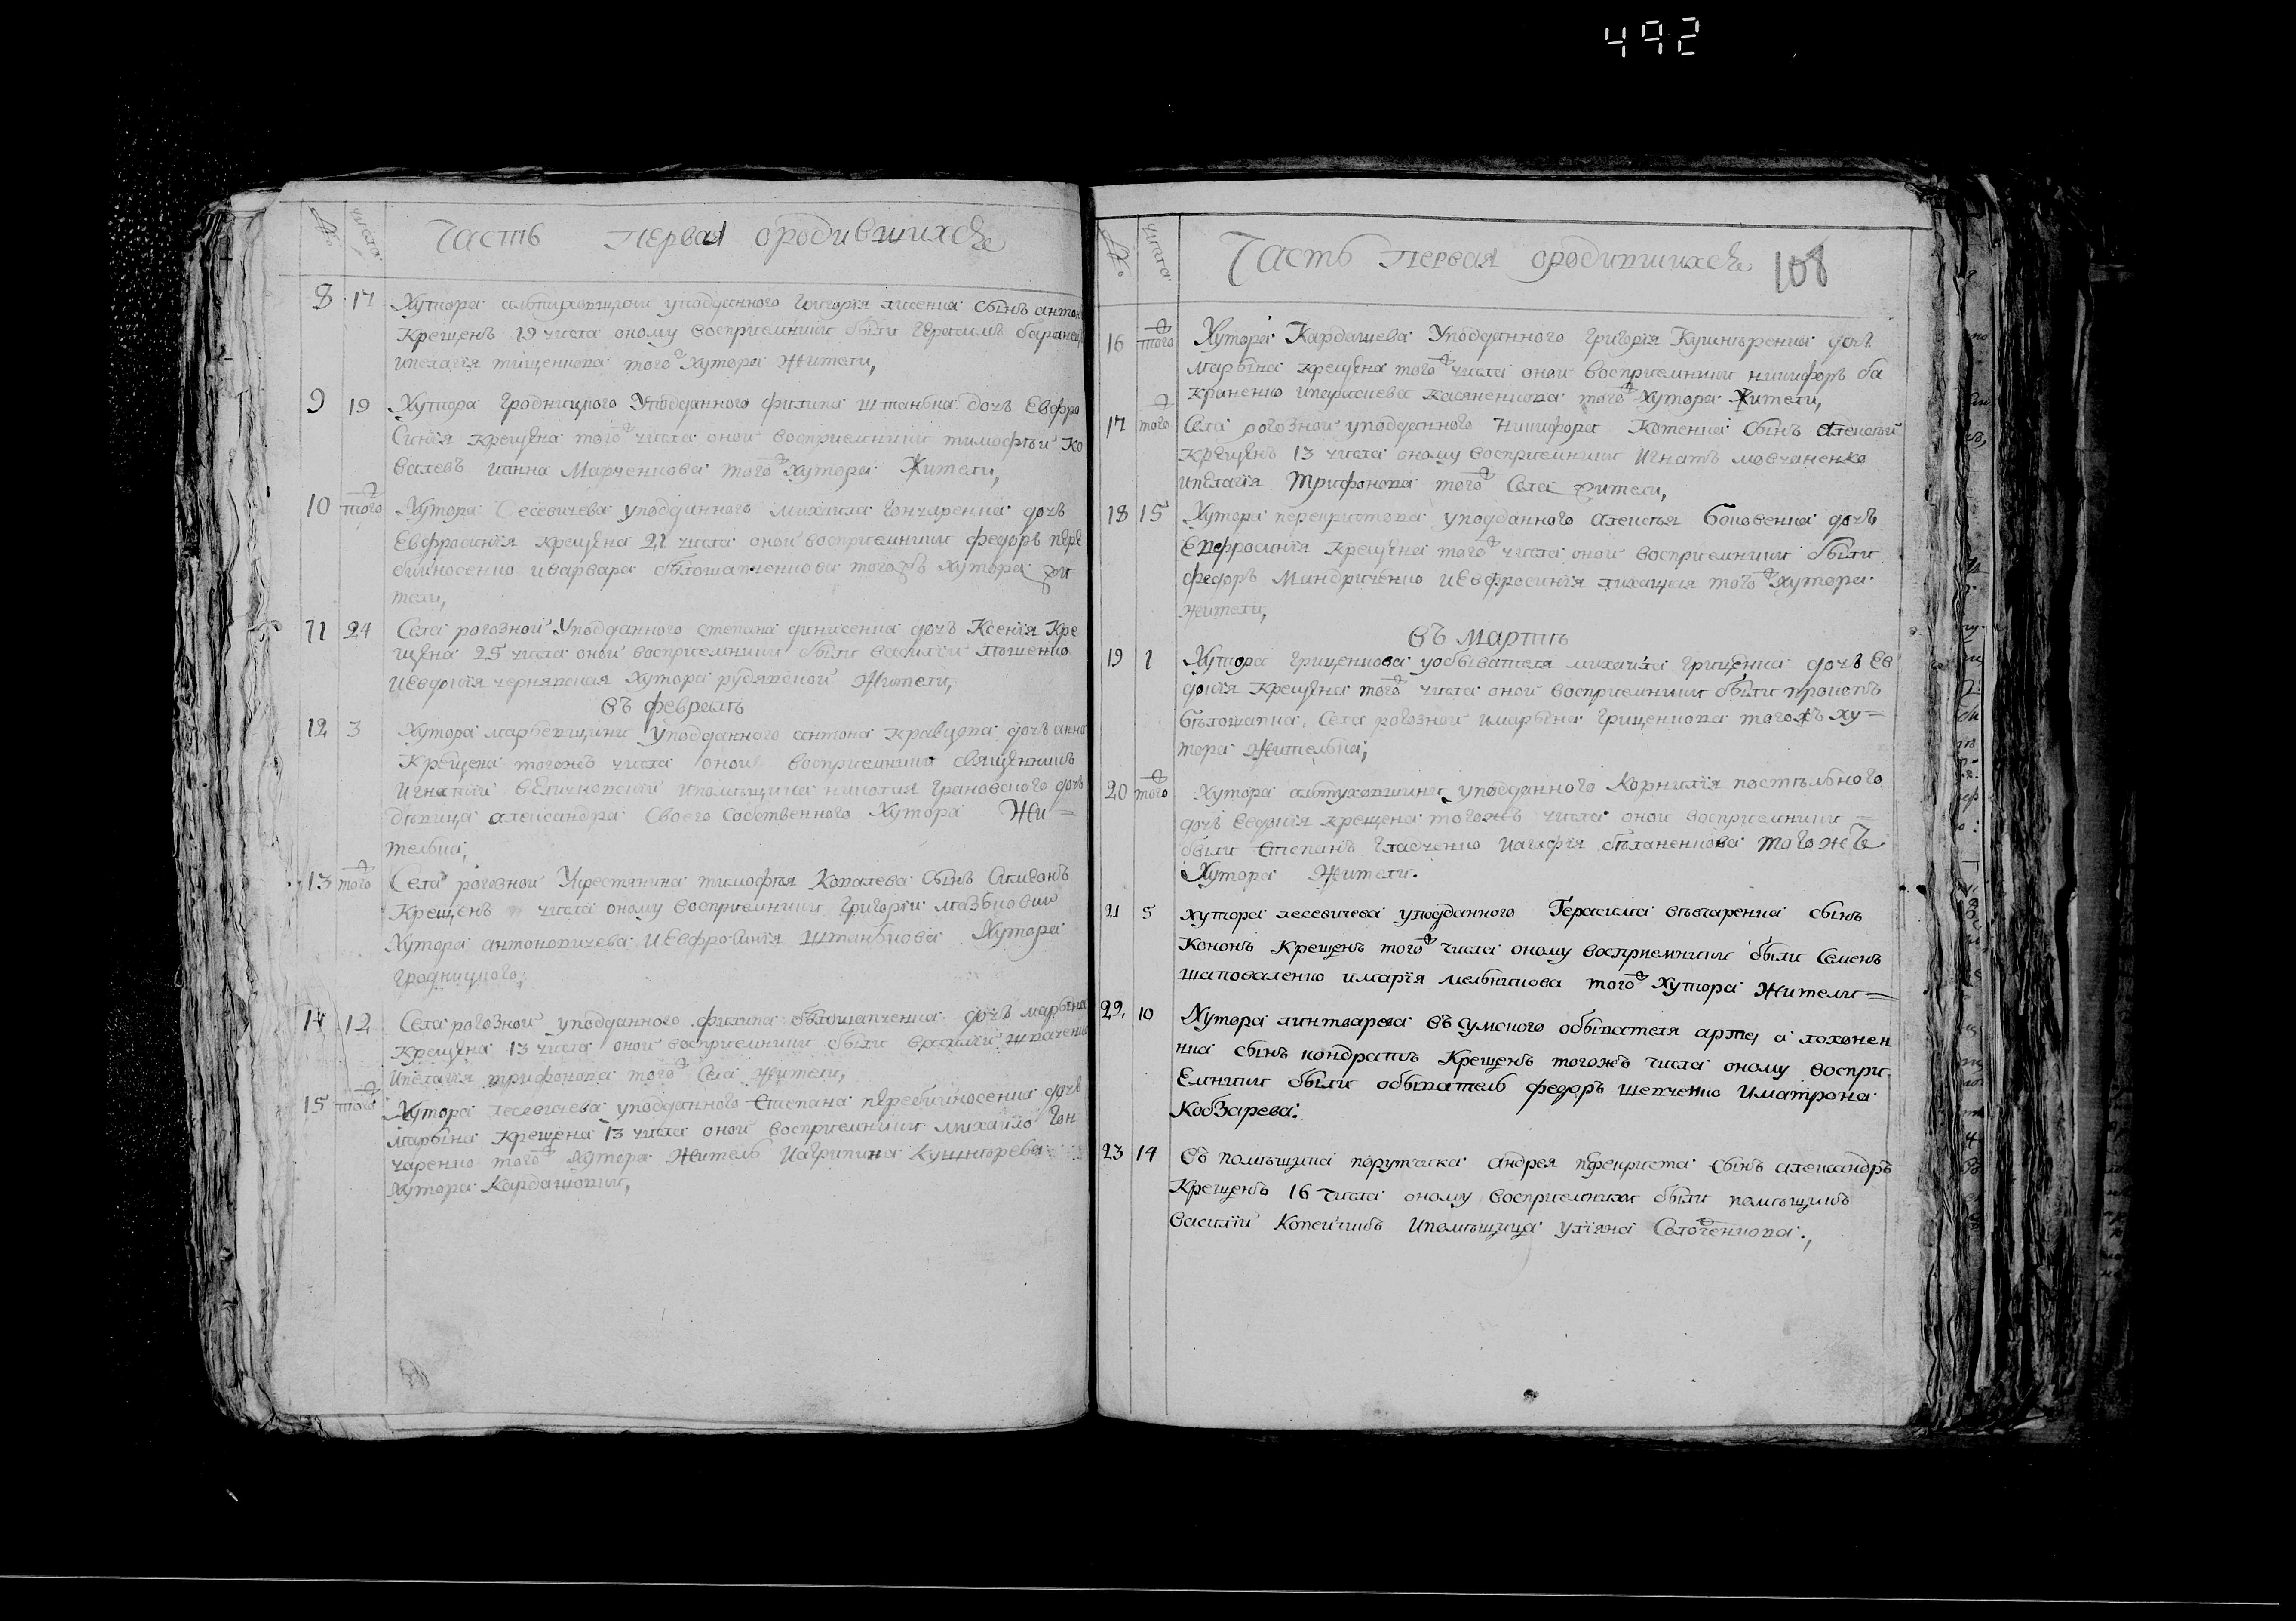 492
№ числа Часть первая ородившихся
8 17 Хутора алтуховщини уподданного григорія лисенка сынъ антонъ
крещенъ 19 числа оному восприемники были герасимъ баранец
ипелагія тищенкова того ж хутора жители,
9 19 Хутора гродницкого уподданного филипа штанька дочь Евфро
синія крещена того ж числа оной восприемники тимофѣй ко
валевъ ианна Марченкова того ж хутора жители,
10 того ж Хутора Лесевичева уподданного михаила гончаренка дочь
Евфросинія крещена 21 числа оной восприемники федоръ пере
бийносенко иварвара бѣлошапченкова тогожъ хутора жи
тели,
11 24 Села рогозной уподданного степана денисенка дочь Ксенія кре
щена 25 числа оной восприемники были василій
иевдокія чернявская хутора рудянской жители,
въ февралѣ
12 3 Хутора марковщини уподданного антона кравцова дочь анна
крещена тогожъ числа оной восприемники священникъ
игнатій величковский ипомѣщика николая грановского дочь
дѣвица александра своего собственного хутора жи=
телька,
13 того ж Села рогозной укрестянина тимофѣя ковалева сынъ симеонъ
крещенъ числа оному восприемники григорій
хутора антоновичева иЕвфросинія штанькова хутора
гродницкого,
14 12 Села рогозной уподданного филипа бѣлошапченка дочь марѣна
крещена 13 числа оной восприемники были василий шпаченко
ипелагія трифонова того ж села жители,
15 того ж Хутора лесевичева уподданного степана перебийносенка дочь
марьна крещена 13 числа оной восприемники михайло гон
чаренко того ж хутора житель иагрипина кушнѣрева
хутора кардашовки,
№ числа Часть первая ородившихся 108
16 того ж Хутора Кардашева уподданного григорія кушнѣренка дочь
марьна крещена того ж числа оной восприемники никифоръ ба
краненко ипарасиева касяненкова того ж хутора жители,
17 того ж Села рогозной уподданного никифора котенка сынъ алексѣй
крещенъ 13 числа оному восприемники игнатъ мовчаненко
ипелагія трифонова того ж села жители,
18 15 Хутора перекристова уподданного алексѣя боковенка дочь
Евфросинія крещена того ж числа оной восприемники были
федоръ Миндриченко иЕвфросинія лихацкая того ж хутора
жители,
въ мартѣ
19 1 Хутора гриценкова уобывателя михаила гриценка дочь Ев
докія крещена того ж числа оной восприемники были прокопъ
бѣлошапка, села рогозной имарьна гриценкова тогожъ ху=
тора жителька,
20 того ж Хутора алтуховщини уподданного корнилія постѣльного
дочь евдокія крещена тогожъ числа оной восприемники =
были степанъ гладченко иагафія бѣланенкова тогожъ
хутора жители.
21 5 хутора лесевичева уподданного герасима вѣвчаренка сынъ
кононъ крещенъ того ж числа оному восприемники были семенъ
шаповаленко имарія мельникова того ж хутора жители=
22 10 Хутора линтварева въ сумского обывателя артема лохонен
нка сынъ кондратъ крещенъ тогожъ числа оному воспри
емники были обыватель федоръ шевченко иматрона
кобзарева.
23 14 въ помѣщика порутчика андрея перекриста сынъ александръ
крещенъ 16 числа оному восприемники были помѣщикъ
василій копейчикъ ипомѣщица уліяна